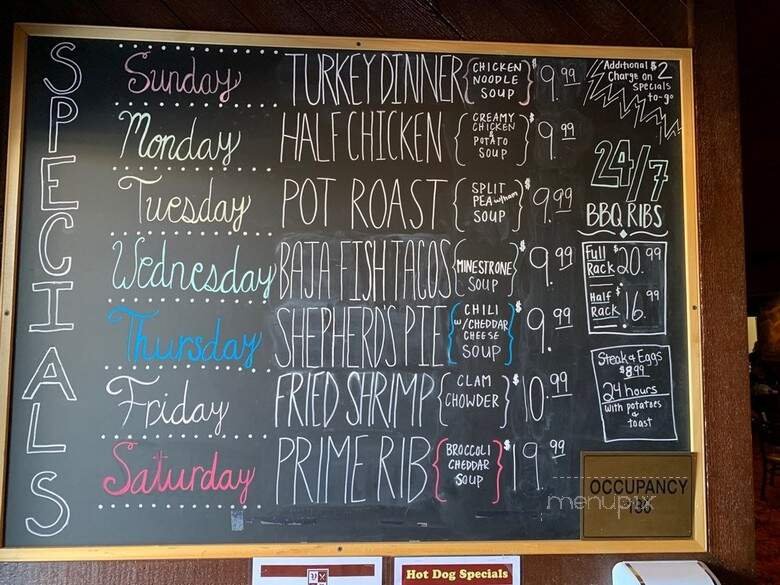 SPECIALS
Sunday TURKEY DINNER { CHICKEN NOODLE SOUP } $9.99
Monday HALF CHICKEN { CREAMY CHICKEN & POTATO SOUP } $9.99
Tuesday POT ROAST { SPLIT PEA w/ham SOUP } $9.99
Wednesday BAJA FISH TACOS { MINESTRONE SOUP } $9.99
Thursday SHEPHERD'S PIE { CHILI w/CHEDDAR CHEESE SOUP } $9.99
Friday FRIED SHRIMP { CLAM CHOWDER } $10.99
Saturday PRIME RIB { BROCCOLI CHEDDAR SOUP } $19.99
Additional $2
Charge on
specials
to-go
24/7
BBQ RIBS
Full Rack $20.99
Half Rack $16.99
Steak & Eggs
$8.99
24 hours
with potatoes
& toast
OCCUPANCY
136
menupix
Hot Dog Specials